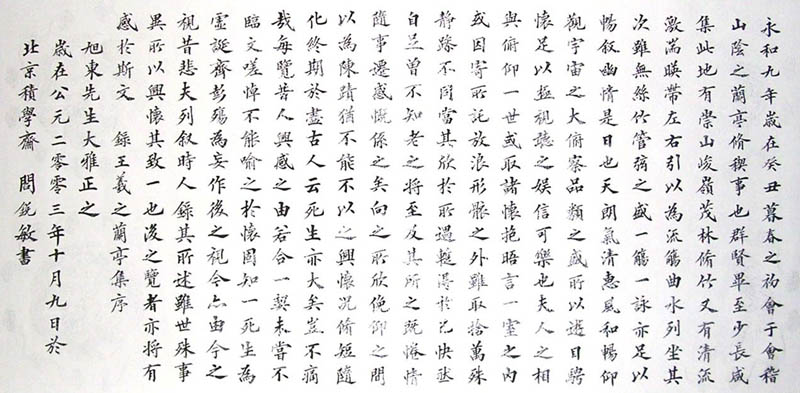 永和九年歲在癸丑暮春之初會于會稽
山陰之蘭亭脩稧事也群賢畢至少長咸
集此地有崇山峻嶺茂林脩竹又有清流
激湍暎帶左右引以為流觴曲水列坐其
次雖無絲竹管弦之盛一觴一詠亦足以
暢叙幽情是日也天朗氣清惠風和暢仰
觀宇宙之大俯察品類之盛所以遊目騁
懷足以極視聽之娛信可樂也夫人之相
與俯仰一世或取諸懷抱晤言一室之內
或因寄所託放浪形骸之外雖取捨萬殊
靜躁不同當其欣於所遇蹔得於己快然
自足曾不知老之將至及其所之既惓情
隨事遷感慨係之矣向之所欣俛仰之間
以為陳蹟猶不能不以之興懷況脩短隨
化終期於盡古人云死生亦大矣豈不痛
哉每覽昔人興感之由若合一契未嘗不
臨文嗟悼不能喻之於懷固知一死生為
虛誕齊彭殤為妄作後之視今亦由今之
視昔悲夫列叙時人錄其所述雖世殊事
異所以興懷其致一也後之覽者亦將有
感於斯文 錄王羲之蘭亭集序
旭東先生大雅正之
歲在公元二零零三年十月九日於
北京積學齋 閻銳敏書